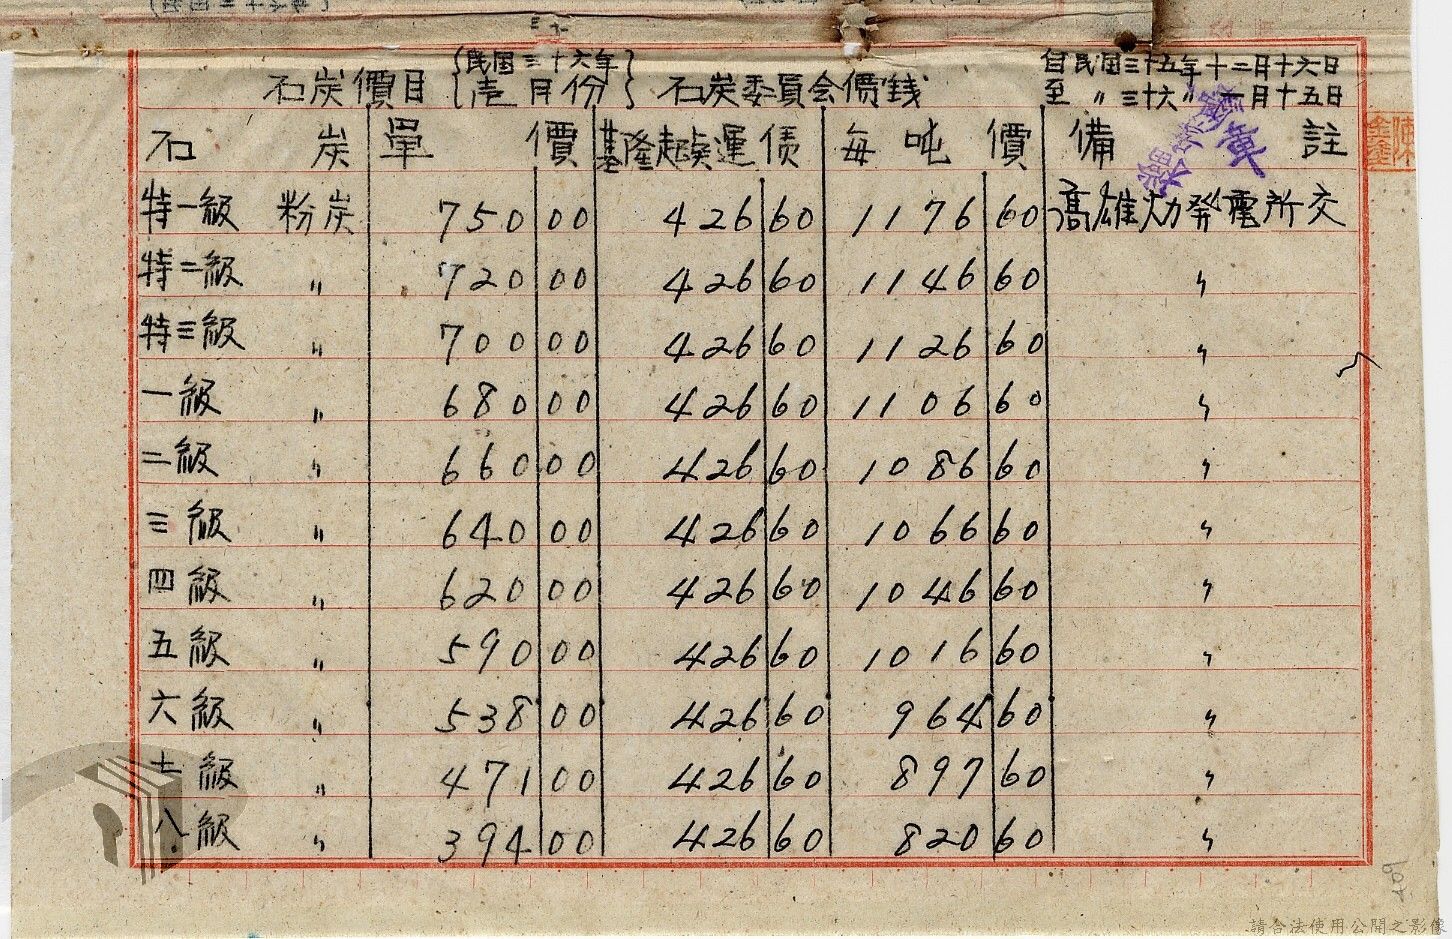 石炭價目 {民国三十六年 壱月份} 石炭委員会價錢 自民國三十五年十二月十六日
至〃三十六〃一月十五日
石炭 單價 基隆起点運債 每吨價 備註
特一級 粉炭 750 00 426 60 1176 60 高雄火力発電所交
特二級 〃 720 00 426 60 1146 60 〃
特三級 〃 700 00 426 60 1126 60 〃
一級 〃 680 00 426 60 1106 60 〃
二級 〃 660 00 426 60 1086 60 〃
三級 〃 640 00 426 60 1066 60 〃
四級 〃 620 00 426 60 1046 60 〃
五級 〃 590 00 426 60 1016 60 〃
六級 〃 538 00 426 60 964 60 〃
七級 〃 471 00 426 60 897 60 〃
八級 〃 394 00 426 60 820 60 〃
409
請合法使用公開之影像